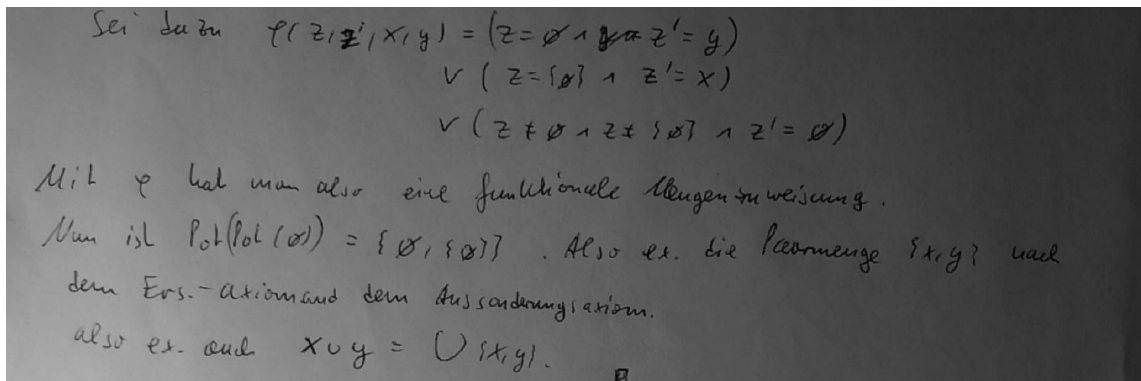 Sei dazu φ(z,z',x,y) = (z=∅ ∧ z'=y)
∨ (z={∅} ∧ z'=x)
∨ (z≠∅ ∧ z≠{∅} ∧ z'=∅)
Mit φ hat man also eine funktionale Mengenzuweisung.
Nun ist Pot(Pot(∅)) = {∅,{∅}}. Also ex. die Paarmenge {x,y} nach
dem Ers.-axiom und dem Aussonderungsaxiom.
also ex. auch x∪y = ⋃{x,y}.